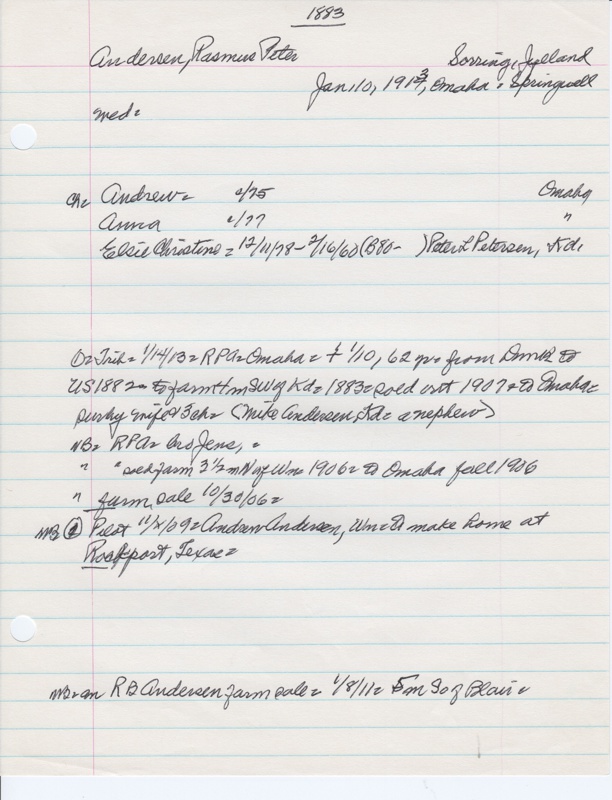 1883
Andersen, Rasmus Peter Sorring, Jylland
Jan. 10, 1913, Omaha = Springwell
wed=
Ch= Andrew= c/75 Omaha
Anna c/77 "
Elsie Christine = 12/11/78 - 2/16/60 (B80- ) Peter L Petersen, Kd.
O= Trib= 1/14/13 = RPA= Omaha = † 1/10, 62 yr= from Dmk to
US 1882 = to farm 4 m SW of Kd= 1883 = sold out 1907 = to Omaha=
surv by wife & 3 ch= (Mike Andersen, Kd= a nephew)
NB= RPA= bro Jens, =
" " sed farm 3 1/2 m N of Wn= 1906 = to Omaha fall 1906
" farm sale 10/30/06=
NB Pilot 11/ /09 = Andrew Andersen, Wn= to make home at
Rockport, Texas=
NB= an R B Andersen farm sale= 1/8/11= 5m So of Blair=